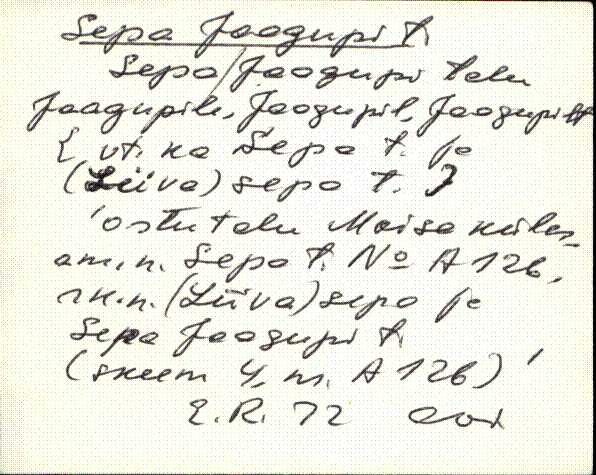 Sepa Jaagupi t.
Sepa/Jaagupi talu
Jaagupile, Jaagupil, Jaagupilt
[ vt. ka Sepa t. ja
(Liiva)sepa t. ]
'ostutalu Mõisakülas,
am.n. Sepa t. No A 126,
rk.n. (Liiva)sepa ja
Sepa Jaagupi t.
(skeem 4, nr. A 126)'
E.R. 72